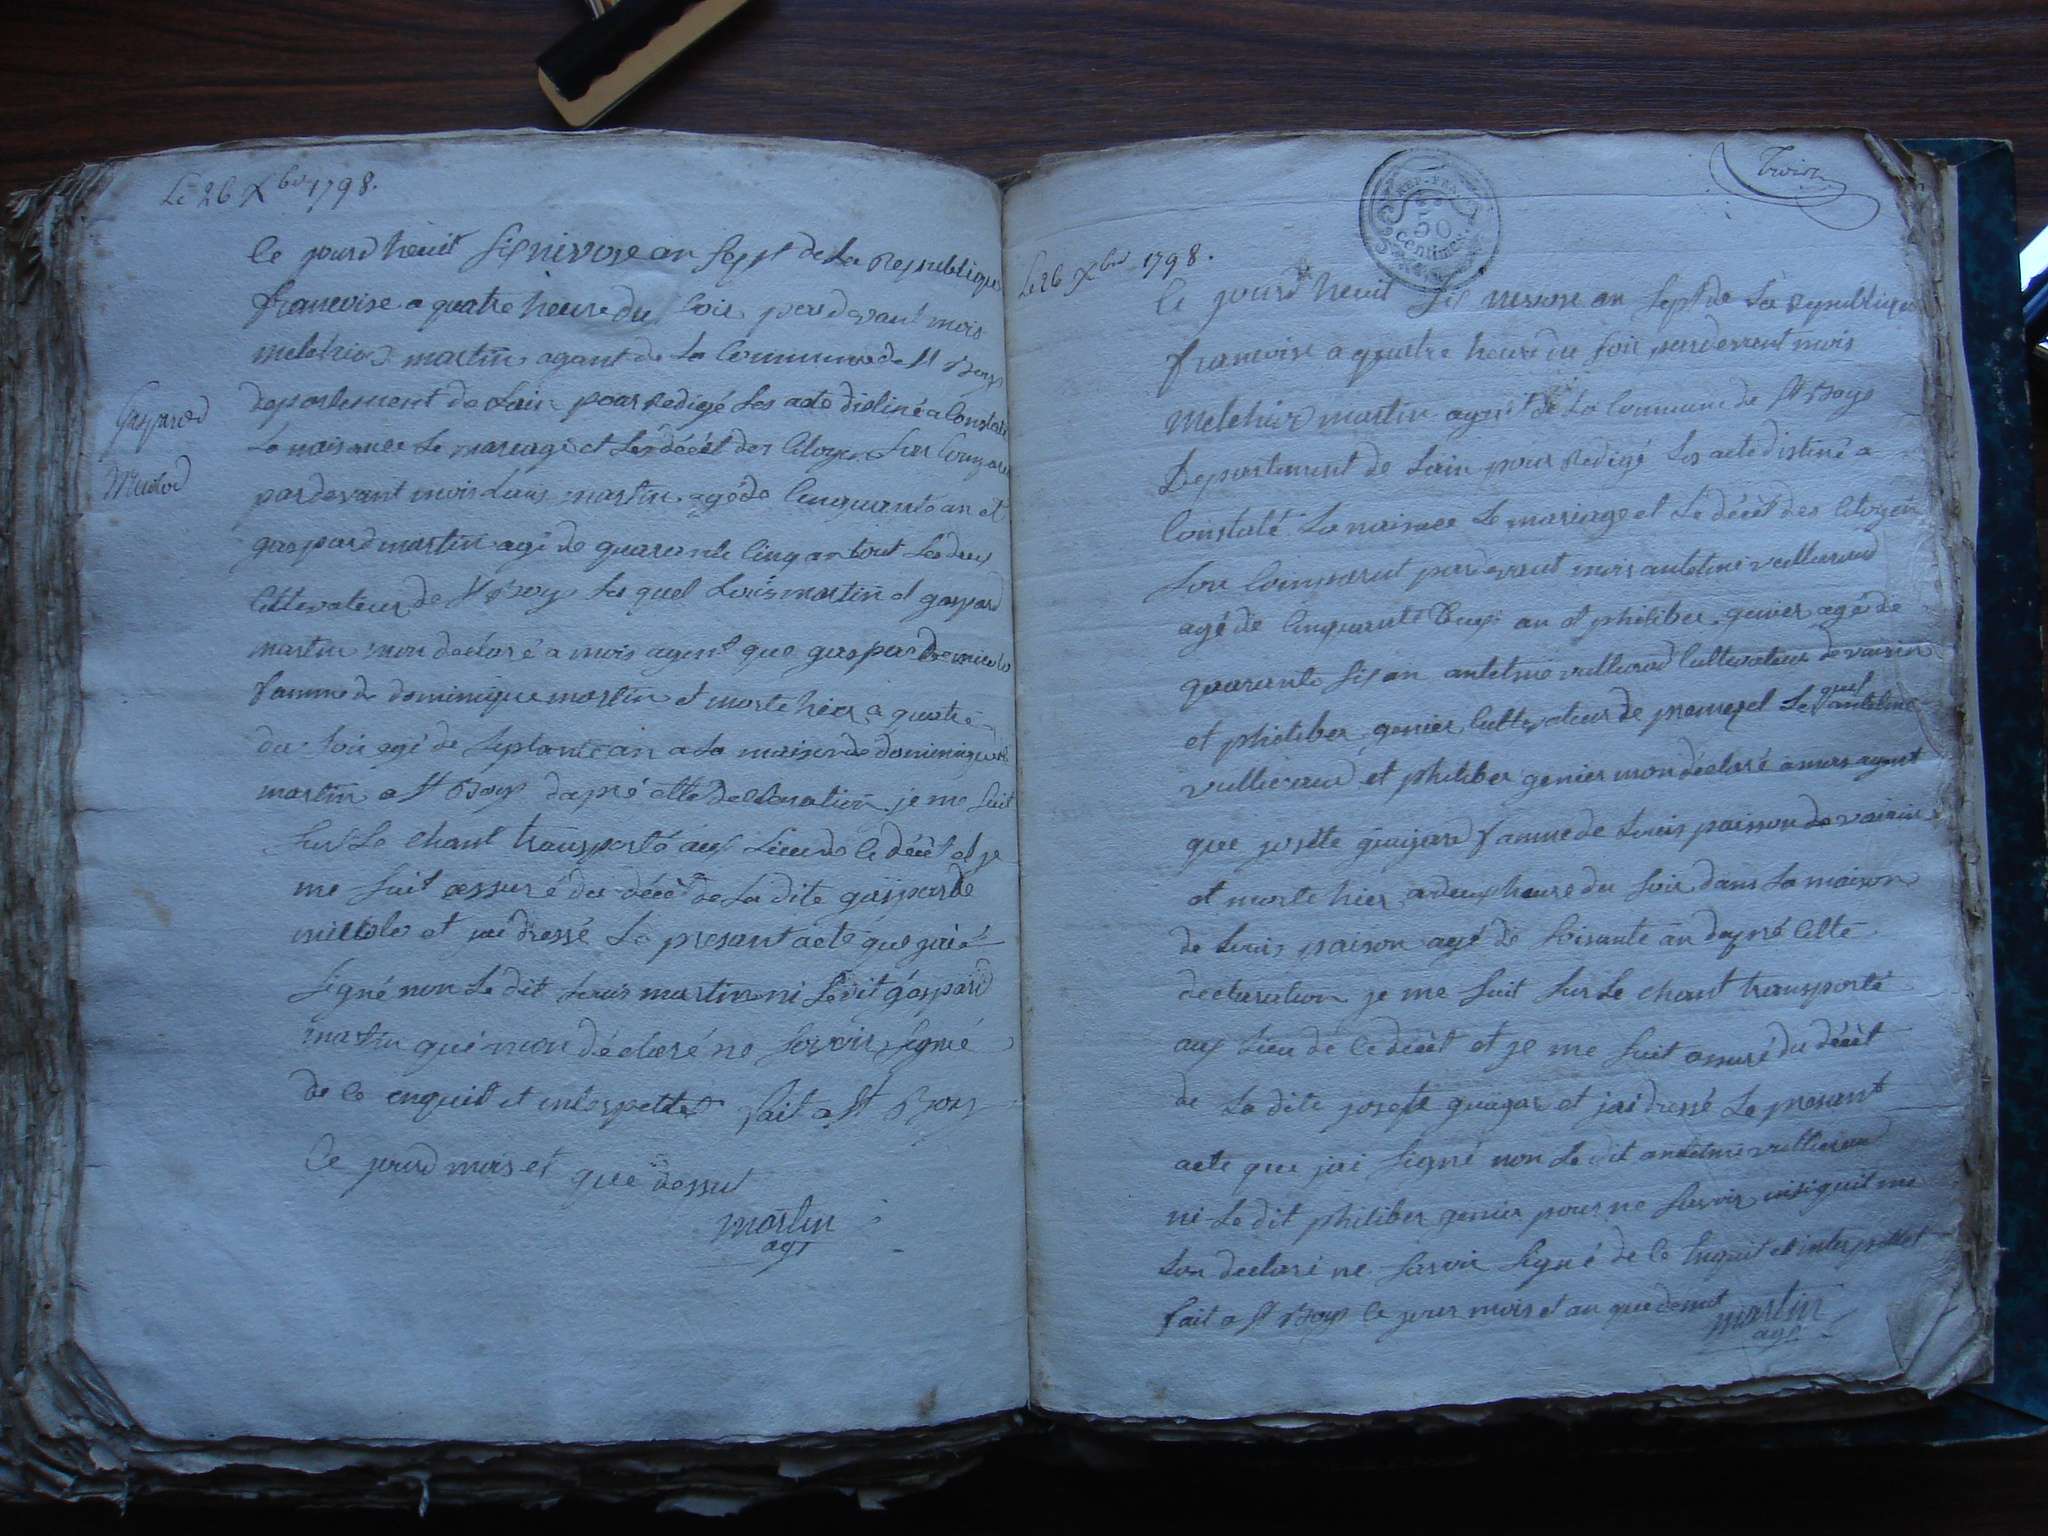 Le 26 Xbre 1798.
Ce jourd heuit six nivose an sept de la Republique
francoise a quatre heure du soir pardevant mois
melchior martin agant de la Commune de St Boys
departement de Lain pour redigé les acte distiné a Constaté
Gaspard
la naisance le mareage et les décêt des Citoyen son Comparu
Mudod
pardevant mois Louis martin agé de Cinquante an et
gaspard martin agé de quarante Cinq an tout les deux
Cultevateur de St Boys les quel Louis martin et gaspard
martin mon declaré a mois agent que gasparde
famme de dominique martin et morte hier a quatre
du soir agé de septante an a la maison de dominique
martin a St Boys dapré cette declaration je me suit
sur le chant transporté aux Lieu de ce décêt et je
me suit assuré du décêt de la dite gasparde
et jai dressé le presant acte que jai
signé non le dit Louis martin ni le dit gaspard
martin qui mon déclaré ne savoir signé
de ce enquit et interpettet fait a St Boys
Ce jour mois et que dessut
martin
agt
Troix
REP. FRA.
50
centimes
Le 26 Xbre 1798.
Ce jourd heuit six nivose an sept de la Republique
francoise a quatre heure du soir pardevent mois
Melchior martin agent de la Commune de St Boys
Departement de Lain pour redigé les acte distiné a
Constaté la naisance le mariage et le décêt des Citoyen
son Comparut pardevant mois antelme vullierod
agé de Cinquante deux an et philiber genier agé de
quarante six an antelme vullierod Cultevateur de
et philiber genier Cultevateur de premeyel Le quel antelme
vullierod et philiber genier mon déclaré a mois agent
que josette famme de Louis paisson de
et morte hier a deux heure du soir dans la maison
de Louis paison agé de soisante an dapré cette
declaration je me suit sur le chant transporté
aux Lieu de ce décêt et je me suit assuré du décêt
de la dite josette et jai dressé le presant
acte que jai signé non le dit antelme vullierod
ni le dit philiber genier pour ne savoir insiquil me
lon declaré ne savoir signé de ce enquit et interpettet
fait a St Boys Ce jour mois et an que dessut
martin
agt